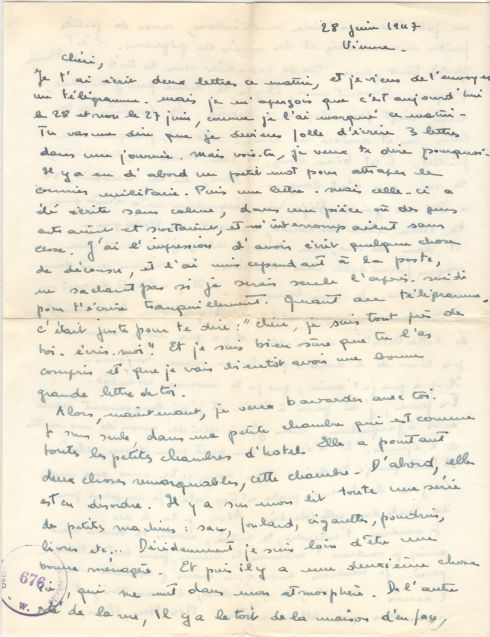 28 juin 1947
Vienne.
Chéri,
Je t'ai écrit deux lettres ce matin, et je viens de t'envoyer
un télégramme. mais je m'aperçois que c'est aujourd'hui
le 28 et non le 27 juin, comme je l'ai marqué ce matin.
Tu vas me dire que je deviens folle d'écrire 3 lettres
dans une journée. Mais vois-tu, je veux te dire pourquoi.
Il y a eu d'abord un petit mot pour attraper le
courrier militaire. Puis une lettre. Mais celle-ci a
été écrite sans calme, dans une pièce où des gens
entraient et sortaient, et m'interrompaient sans
cesse. J'ai l'impression d'avoir écrit quelque chose
de décousu, et l'ai mis cependant à la poste,
ne sachant pas si je serais seule l'après-midi
pour t'écrire tranquillement. Quant au télégramme,
c'était juste pour te dire : "chéri, je suis tout près de
toi. écris-moi". Et je suis bien sûre que tu l'as
compris et que je vais bientôt avoir une bonne
grande lettre de toi.
Alors, maintenant, je veux bavarder avec toi.
Je suis seule, dans ma petite chambre qui est comme
toutes les petites chambres d'hôtel. Elle a pourtant
deux choses remarquables, cette chambre. D'abord, elle
est en désordre. Il y a sur mon lit toute une série
de petits machins : sac, foulard, cigarettes, poudrier,
livres etc... Décidemment, je suis loin d'être une
bonne ménagère. Et puis il y a une deuxième chose
qui me met dans mon atmosphère. De l'autre
côté de la rue, il y a le toit de la maison d'en face,
676
W.